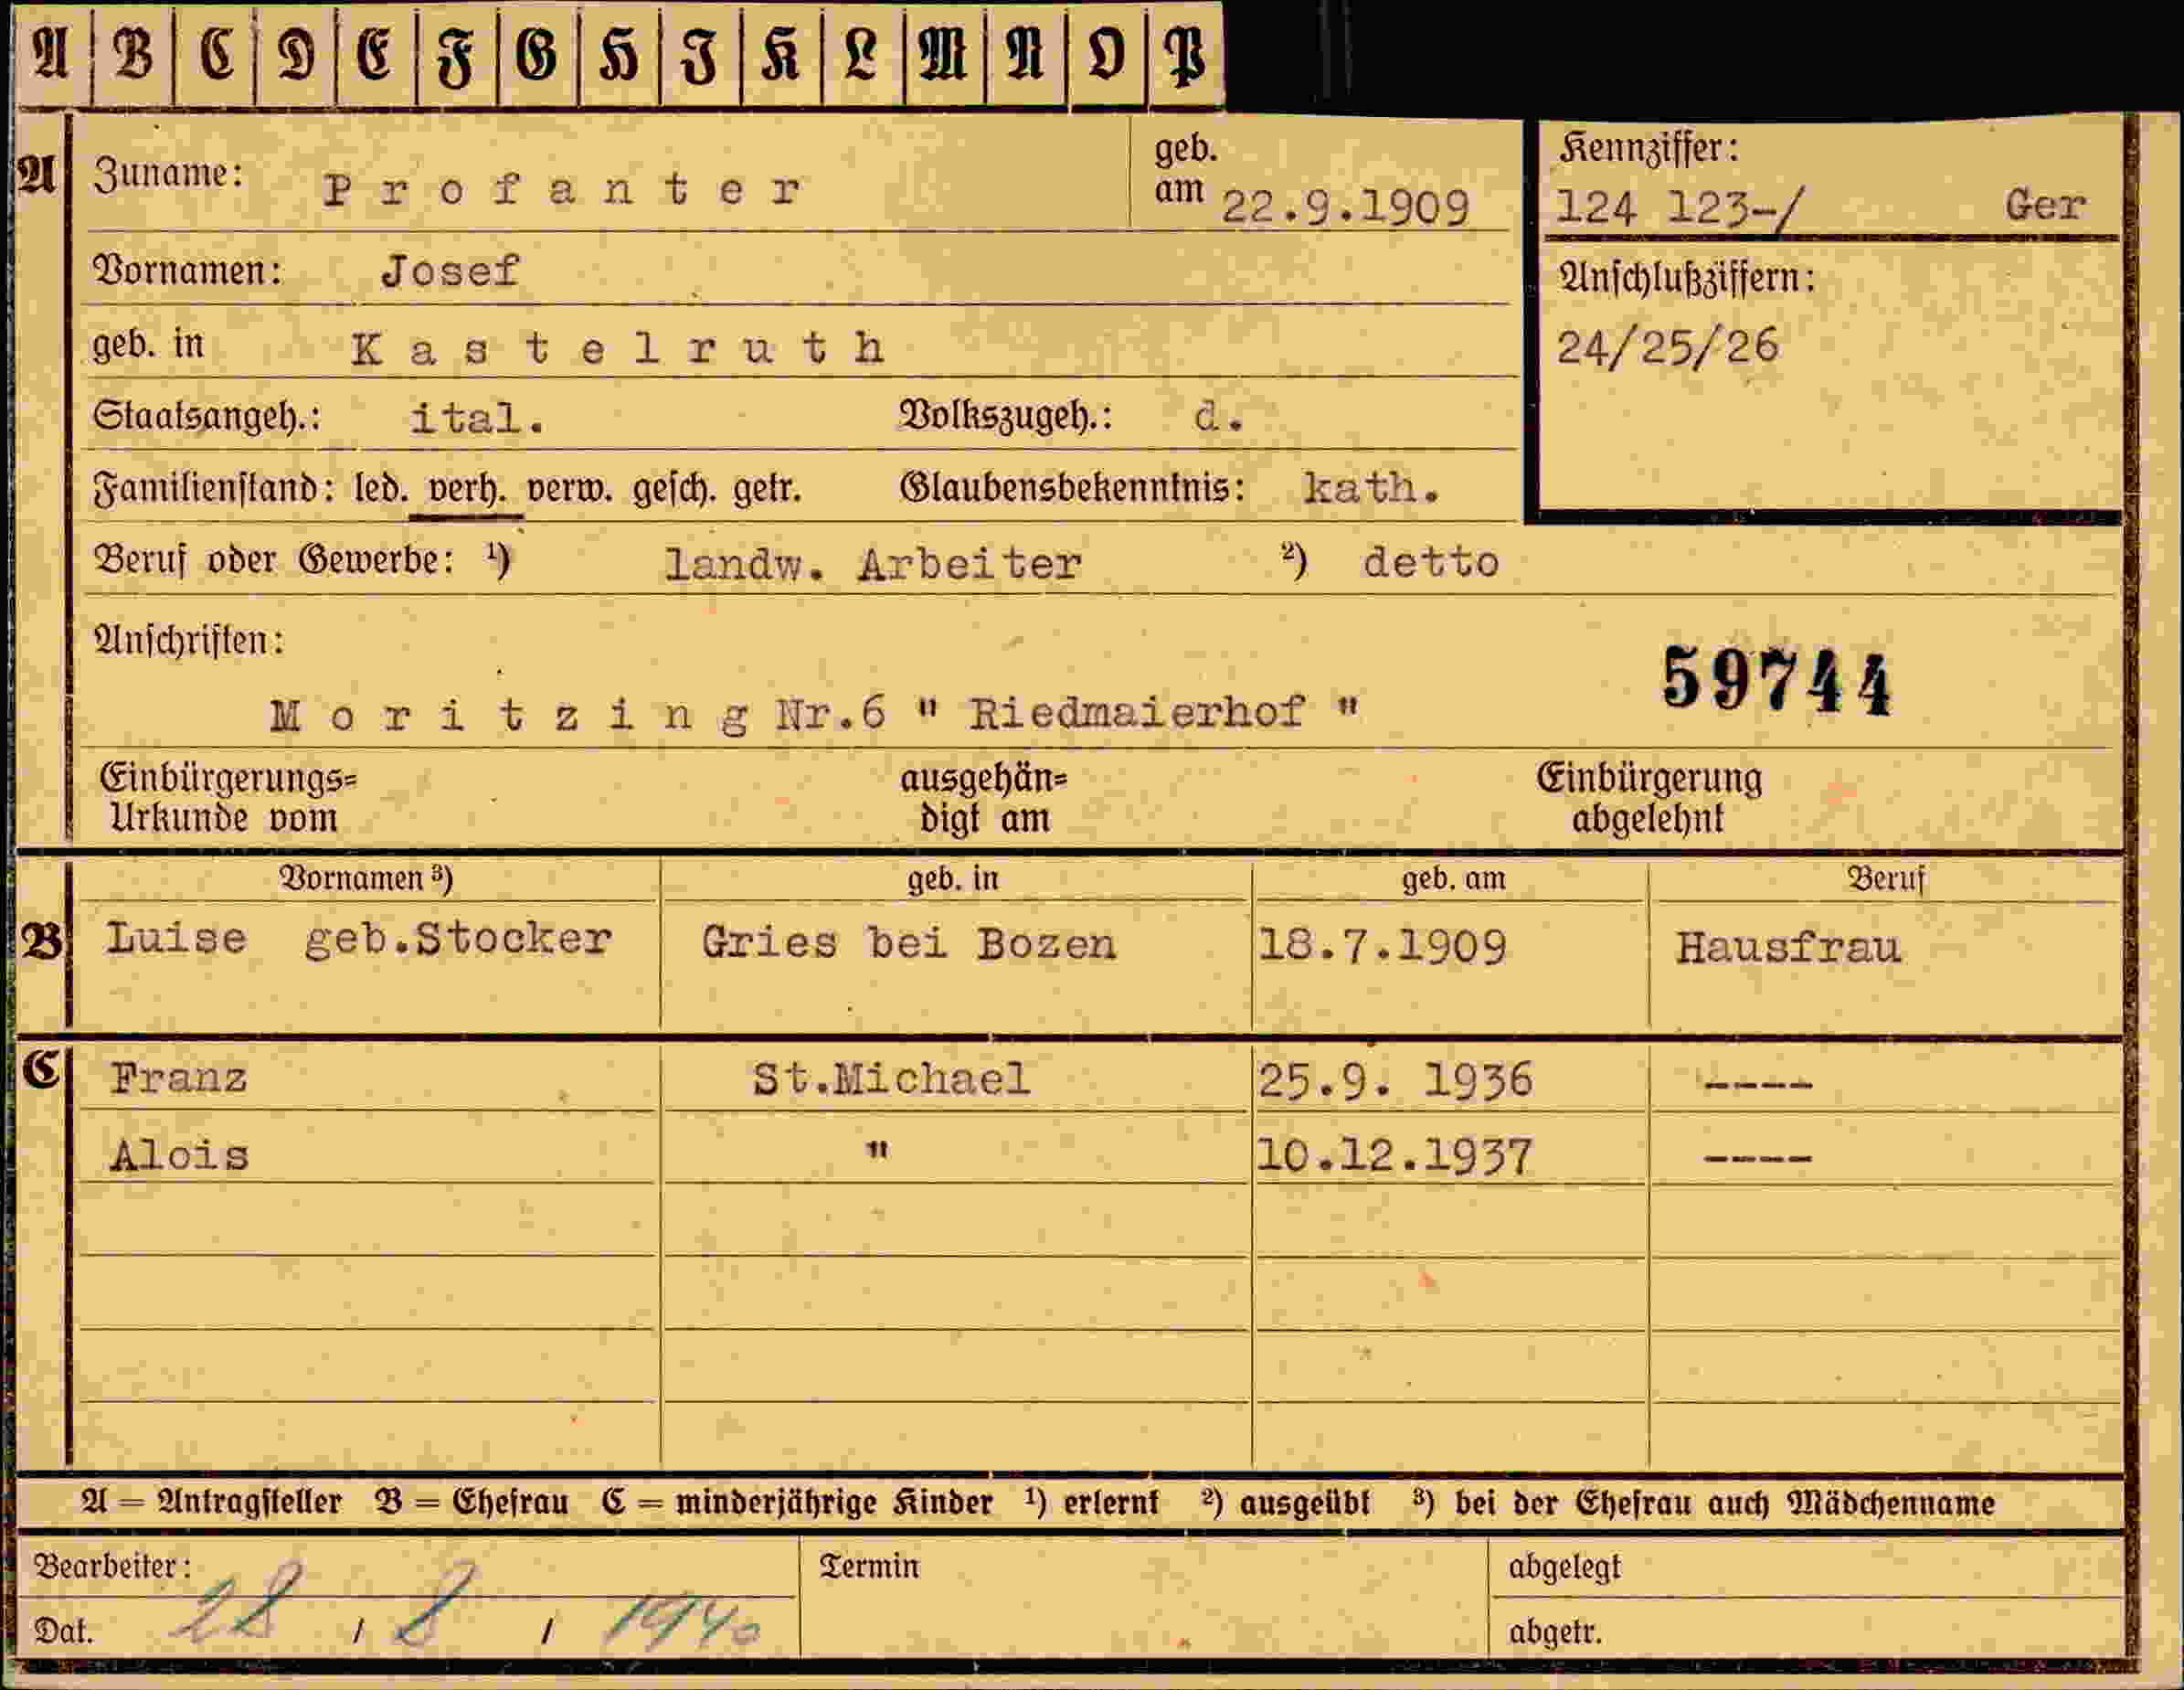 A B C D E F G H I K L M N O P
A Zuname: Profanter geb. am 22.9.1909
Kennziffer:
124 123-/ Ger
Vornamen: Josef
Anschlußziffern:
geb. in Kastelruth
24/25/26
Staatsangeh.: ital. Volkszugeh.: d.
Familienstand: led. verh. verw. gesch. getr. Glaubensbekenntnis: kath.
Beruf oder Gewerbe: ¹) landw. Arbeiter ²) detto
Anschriften:
59744
Moritzing Nr.6 " Riedmaierhof "
Einbürgerungs= ausgehän= Einbürgerung
Urkunde vom digt am abgelehnt
Vornamen ³) geb. in geb. am Beruf
B Luise geb.Stocker Gries bei Bozen 18.7.1909 Hausfrau
C Franz St.Michael 25.9. 1936 ----
Alois " 10.12.1937 ----
A = Antragsteller B = Ehefrau C = minderjährige Kinder ¹) erlernt ²) ausgeübt ³) bei der Ehefrau auch Mädchenname
Bearbeiter: Termin abgelegt
Dat. 28 / 8 / 1940 abgetr.